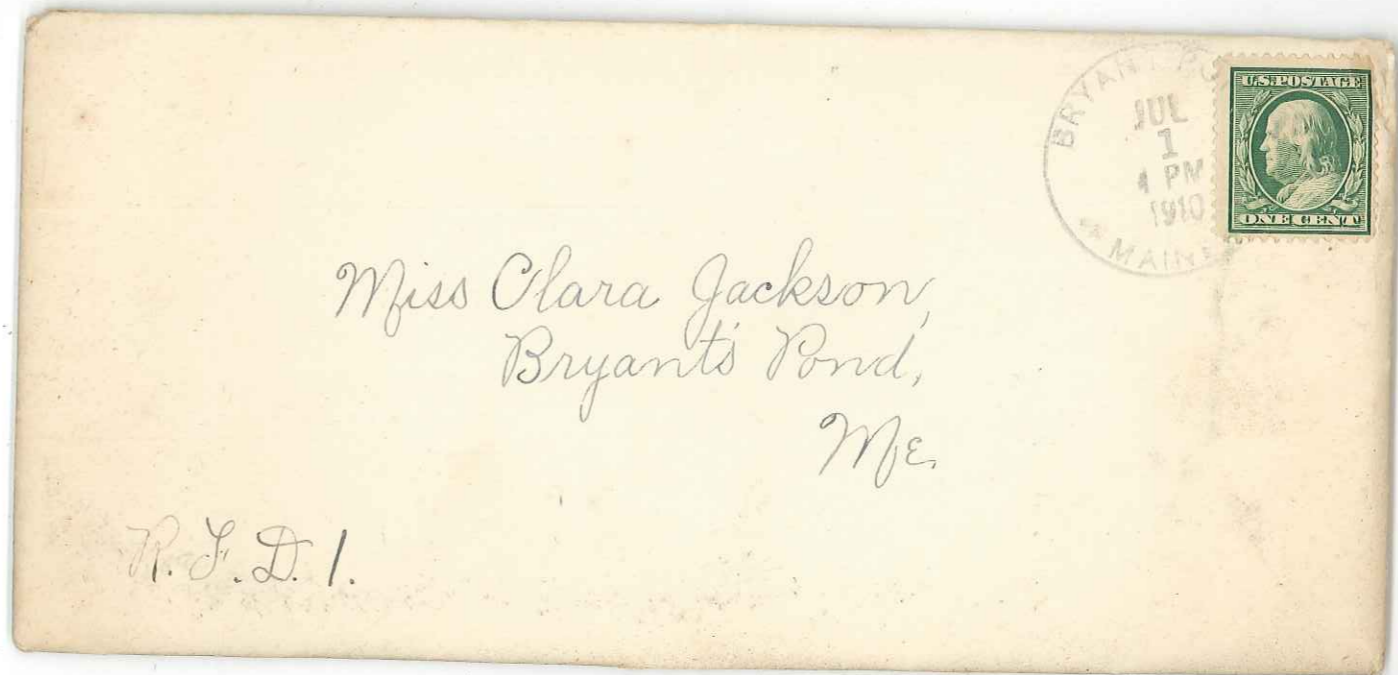 BRYANT
JUL
1
PM
1910
MAINE
U.S. POSTAGE
ONE CENT
Miss Clara Jackson,
Bryant's Pond,
Me.
R.F.D. 1.